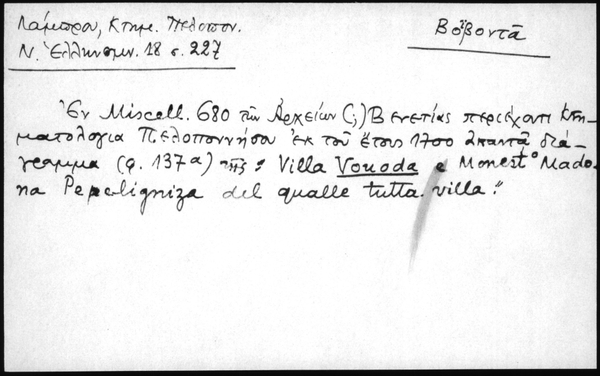 Λάμπρου, Κτημ. Πελοπον.
Ν. Ἑλληνομν. 18 σ. 227
Βοβοντᾶ
Ἐν Miscell. 680 τῶν Ἀρχείων (;) Βενετίας περιέχοντι Κτη-
ματολόγια Πελοποννήσου ἐκ τοῦ ἔτους 1700 ἀπαντᾷ διά-
γραμμα (φ. 137α) τῆς: "Villa Vouoda e Monestº Mado-
na Pepeligniza del qualle tutta villa."